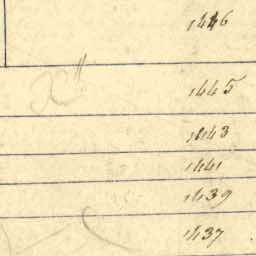 1446
1445
1443
1441
1439
1437